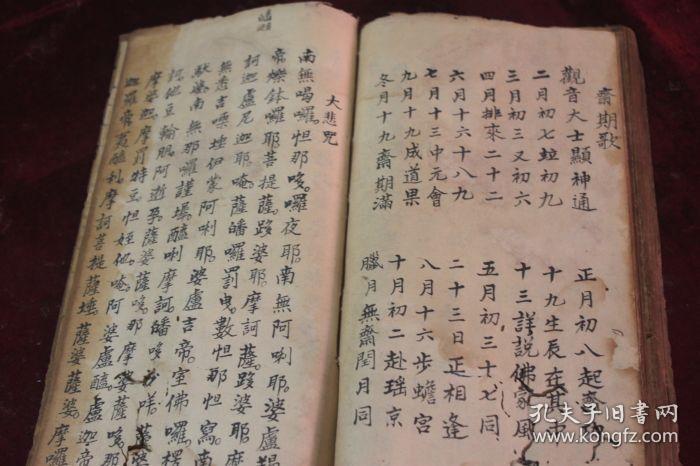 齋期歌
觀音大士顯神通
正月初八起
二月初七竝初九
十九生辰在其
三月初三又初六
十三詳說佛家風
四月排來二十二
五月初三十七同
六月十六十八九
二十三日正相逢
七月十三中元會
八月十六步蟾宮
九月十九成道果
十月初二赴瑤京
冬月十九齋期滿
臘月無齋閏月同
大悲咒
南無喝囉。怛那哆。囉夜耶。南無阿唎耶。婆盧羯
帝爍鉢囉。耶菩提薩。跢婆耶。摩訶薩。跢婆耶。摩
訶迦盧尼迦耶。唵。薩皤囉罰曳。數怛那怛寫。南
無悉吉㗚埵伊蒙阿唎耶。婆盧吉帝。室佛囉楞
馱婆。南無那囉謹墀。醯唎摩訶皤哆
訶他豆輸朋。阿逝孕。薩婆薩哆。那摩婆薩哆。那
摩婆迦。摩罰特豆。怛姪他。唵。阿婆盧醯。盧迦帝
迦羅帝。夷醯利。摩訶菩提薩埵。薩婆薩婆。摩囉
孔夫子旧书网
www.kongfz.com